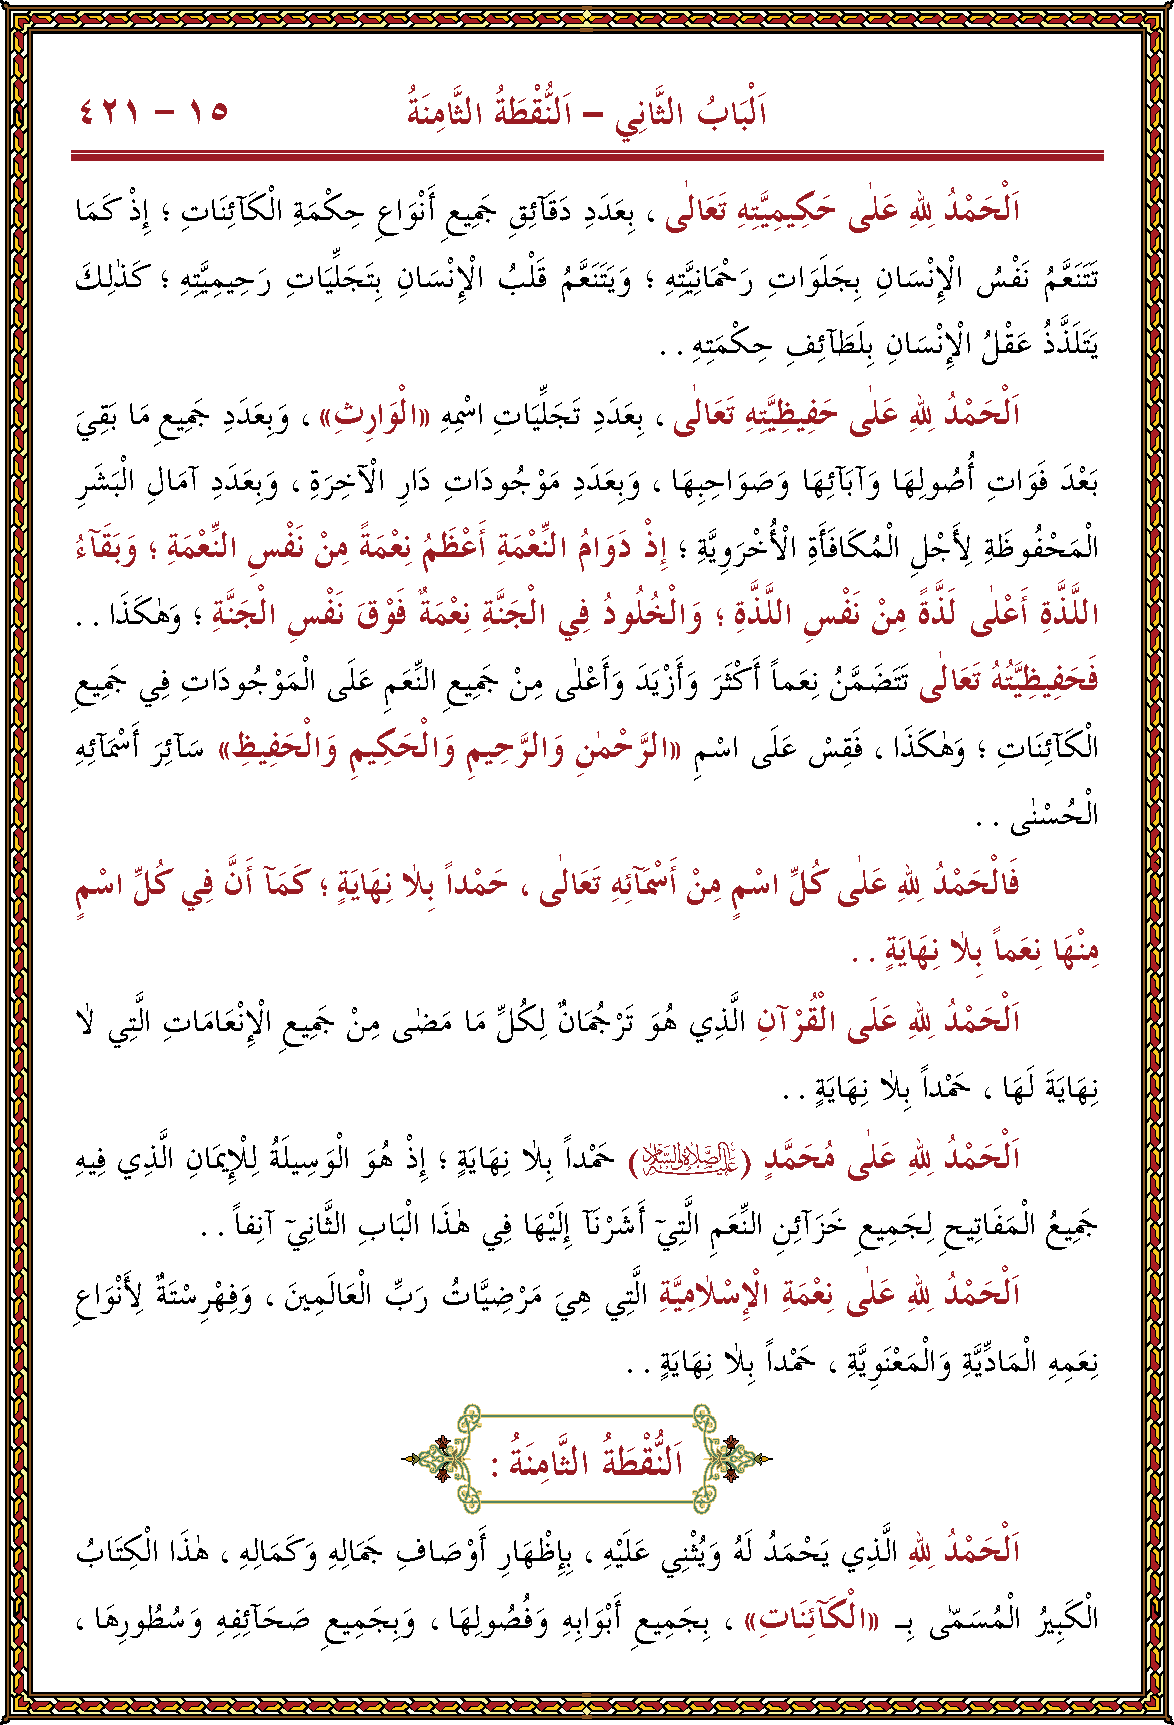 اَلْبَابُ الثَّانِي – اَلنُّقْطَةُ الثَّامِنَةُ ١٥ – ٤٢١
اَلْحَمْدُ لِلهِ عَلٰى حَكِيمِيَّتِهِ تَعَالٰى ، بِعَدَدِ دَقَآئِقِ جَمِيعِ أَنْوَاعِ حِكْمَةِ الْكَآئِنَاتِ ؛ إِذْ كَمَا
تَتَنَعَّمُ نَفْسُ الْإِنْسَانِ بِجَلَوَاتِ رَحْمَانِيَّتِهِ ؛ وَيَتَنَعَّمُ قَلْبُ الْإِنْسَانِ بِتَجَلِّيَاتِ رَحِيمِيَّتِهِ ؛ كَذٰلِكَ
يَتَلَذَّذُ عَقْلُ الْإِنْسَانِ بِلَطَآئِفِ حِكْمَتِهِ . .
اَلْحَمْدُ لِلهِ عَلٰى حَفِيظِيَّتِهِ تَعَالٰى ، بِعَدَدِ تَجَلِّيَاتِ اسْمِهِ «الْوَارِثِ» ، وَبِعَدَدِ جَمِيعِ مَا بَقِيَ
بَعْدَ فَوَاتِ أُصُولِهَا وَآبَآئِهَا وَصَوَاحِبِهَا ، وَبِعَدَدِ مَوْجُودَاتِ دَارِ الْآخِرَةِ ، وَبِعَدَدِ آمَالِ الْبَشَرِ
الْمَحْفُوظَةِ لِأَجْلِ الْمُكَافَأَةِ الْأُخْرَوِيَّةِ ؛ إِذْ دَوَامُ النِّعْمَةِ أَعْظَمُ نِعْمَةً مِنْ نَفْسِ النِّعْمَةِ ؛ وَبَقَآءُ
اللَّذَّةِ أَعْلٰى لَذَّةً مِنْ نَفْسِ اللَّذَّةِ ؛ وَالْخُلُودُ فِي الْجَنَّةِ نِعْمَةٌ فَوْقَ نَفْسِ الْجَنَّةِ ؛ وَهٰكَذَا . .
فَحَفِيظِيَّتُهُ تَعَالٰى تَتَضَمَّنُ نِعَماً أَكْثَرَ وَأَزْيَدَ وَأَعْلٰى مِنْ جَمِيعِ النِّعَمِ عَلَى الْمَوْجُودَاتِ فِي جَمِيعِ
الْكَآئِنَاتِ ؛ وَهٰكَذَا ، فَقِسْ عَلَى اسْمِ «الرَّحْمٰنِ وَالرَّحِيمِ وَالْحَكِيمِ وَالْحَفِيظِ» سَآئِرَ أَسْمَآئِهِ
الْحُسْنٰى . .
فَالْحَمْدُ لِلهِ عَلٰى كُلِّ اسْمٍ مِنْ أَسْمَآئِهِ تَعَالٰى ، حَمْداً بِلَا نِهَايَةٍ ؛ كَمَآ أَنَّ فِي كُلِّ اسْمٍ
مِنْهَا نِعَماً بِلَا نِهَايَةٍ . .
اَلْحَمْدُ لِلهِ عَلَى الْقُرْآنِ الَّذِي هُوَ تَرْجُمَانٌ لِكُلِّ مَا مَضٰى مِنْ جَمِيعِ الْإِنْعَامَاتِ الَّتِي لَا
نِهَايَةَ لَهَا ، حَمْداً بِلَا نِهَايَةٍ . .
اَلْحَمْدُ لِلهِ عَلٰى مُحَمَّدٍ (عَلَيْهِ الصَّلَاةُ وَالسَّلَامُ) حَمْداً بِلَا نِهَايَةٍ ؛ إِذْ هُوَ الْوَسِيلَةُ لِلْإِيمَانِ الَّذِي فِيهِ
جَمِيعُ الْمَفَاتِيحِ لِجَمِيعِ خَزَآئِنِ النِّعَمِ الَّتِيٓ أَشَرْنَآ إِلَيْهَا فِي هٰذَا الْبَابِ الثَّانِيٓ آنِفاً . .
اَلْحَمْدُ لِلهِ عَلٰى نِعْمَةِ الْإِسْلَامِيَّةِ الَّتِي هِيَ مَرْضِيَّاتُ رَبِّ الْعَالَمِينَ ، وَفِهْرِسْتَةٌ لِأَنْوَاعِ
نِعَمِهِ الْمَادِّيَّةِ وَالْمَعْنَوِيَّةِ ، حَمْداً بِلَا نِهَايَةٍ . .
اَلنُّقْطَةُ الثَّامِنَةُ :
اَلْحَمْدُ لِلهِ الَّذِي يَحْمَدُ لَهُ وَيُثْنِي عَلَيْهِ ، بِإِظْهَارِ أَوْصَافِ جَمَالِهِ وَكَمَالِهِ ، هٰذَا الْكِتَابُ
الْكَبِيرُ الْمُسَمّٰى بِـ «الْكَآئِنَاتِ» ، بِجَمِيعِ أَبْوَابِهِ وَفُصُولِهَا ، وَبِجَمِيعِ صَحَآئِفِهِ وَسُطُورِهَا ،